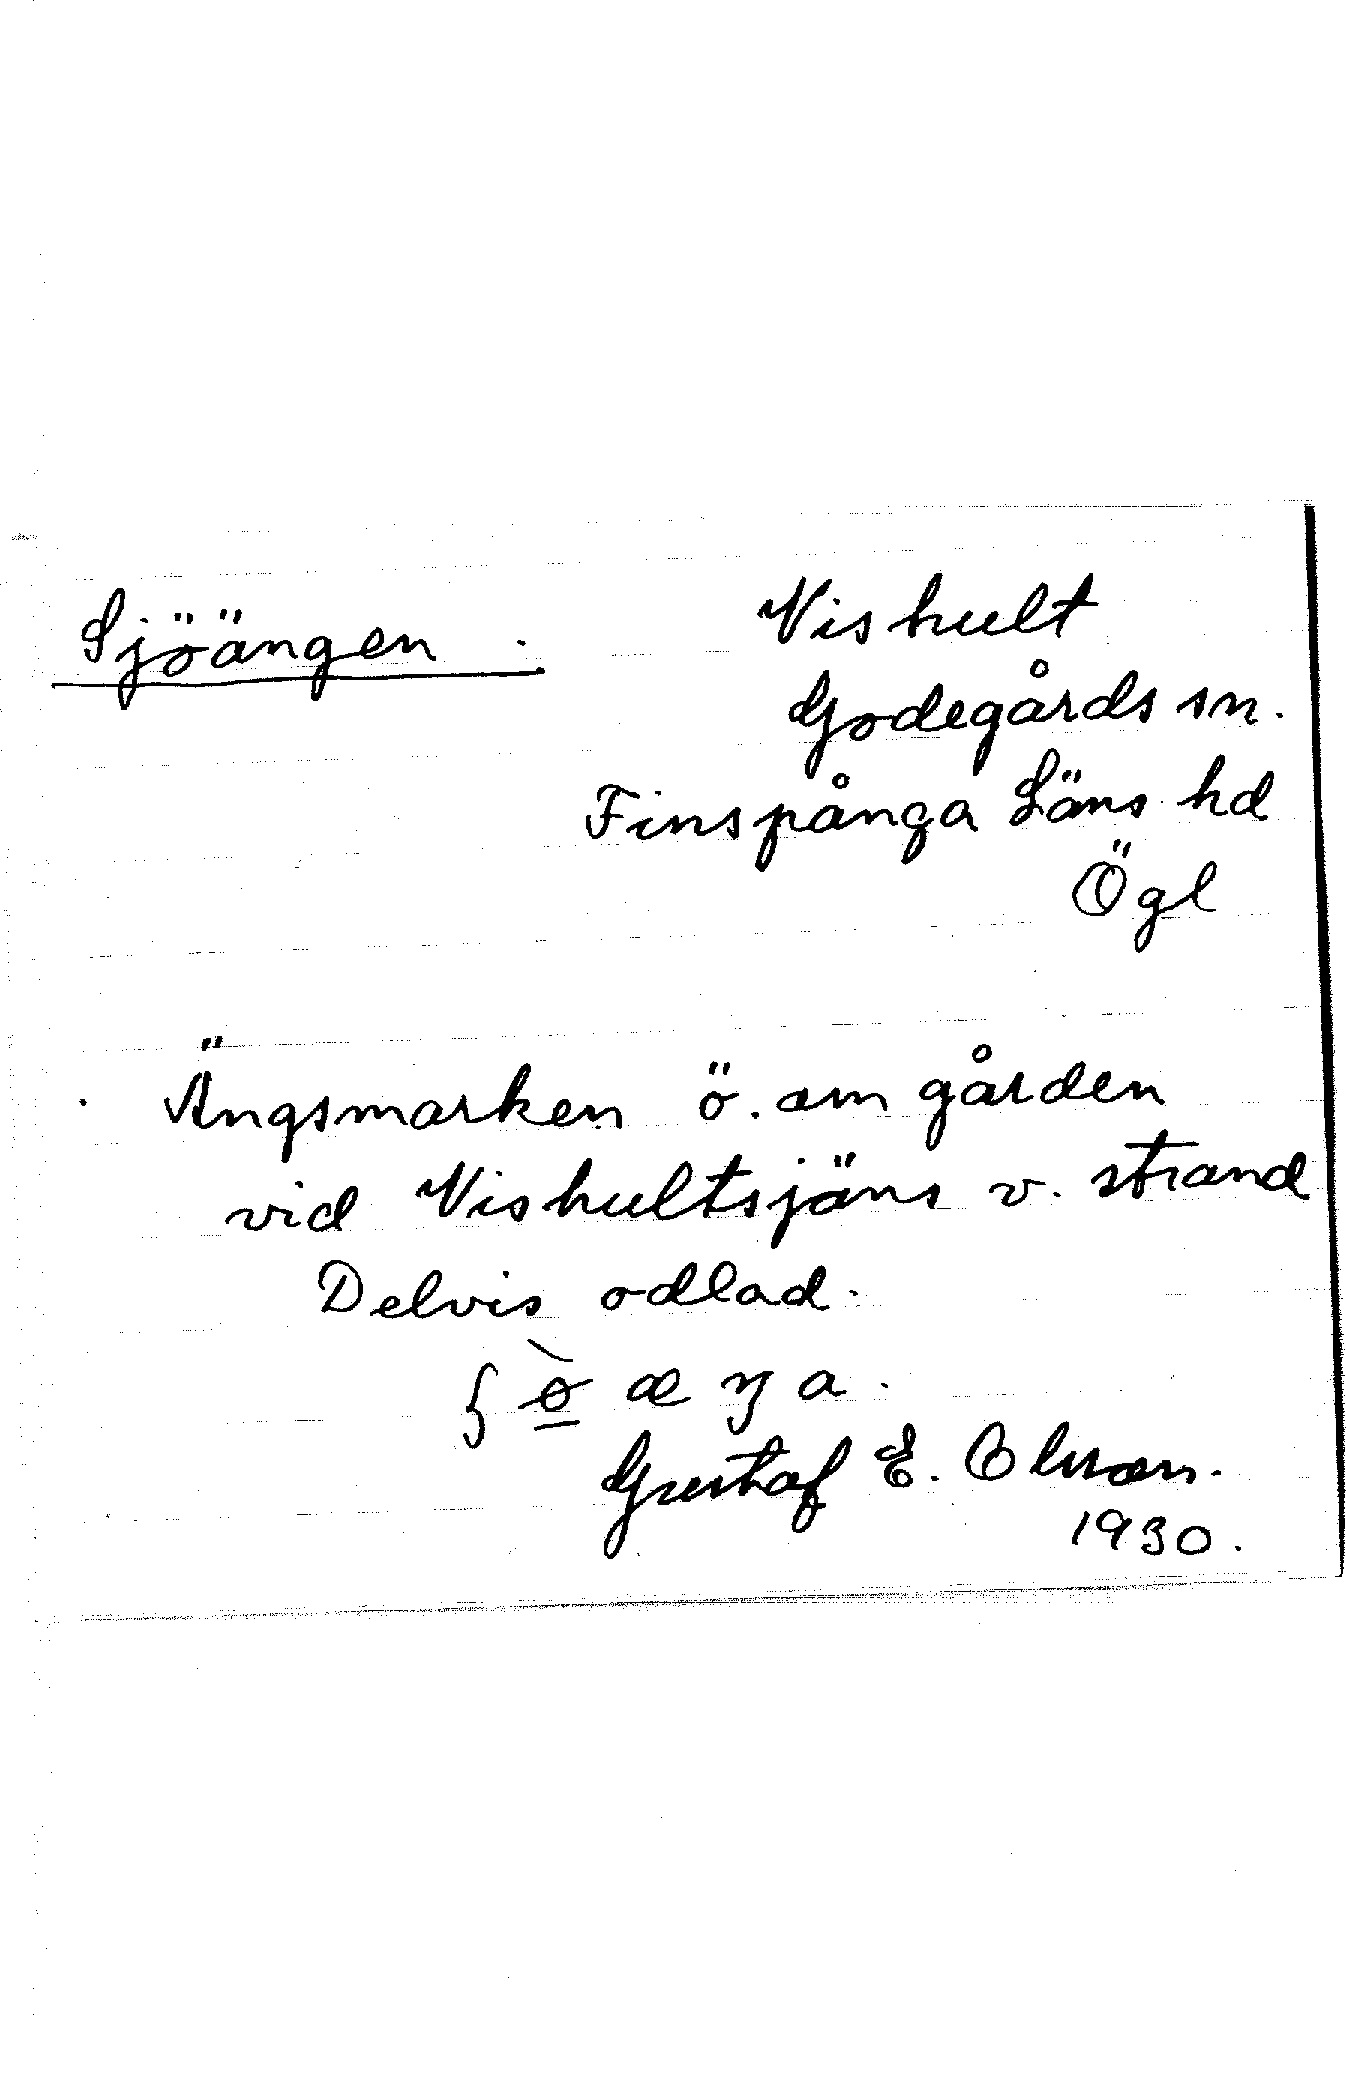 Sjöängen.
Vishult
Godegårds sn.
Finspånga Läns hd
Ögl
Ängsmarken ö. om gården
vid Vishultsjöns v. strand
Delvis odlad.
Gustaf E. Olsson.
1930.